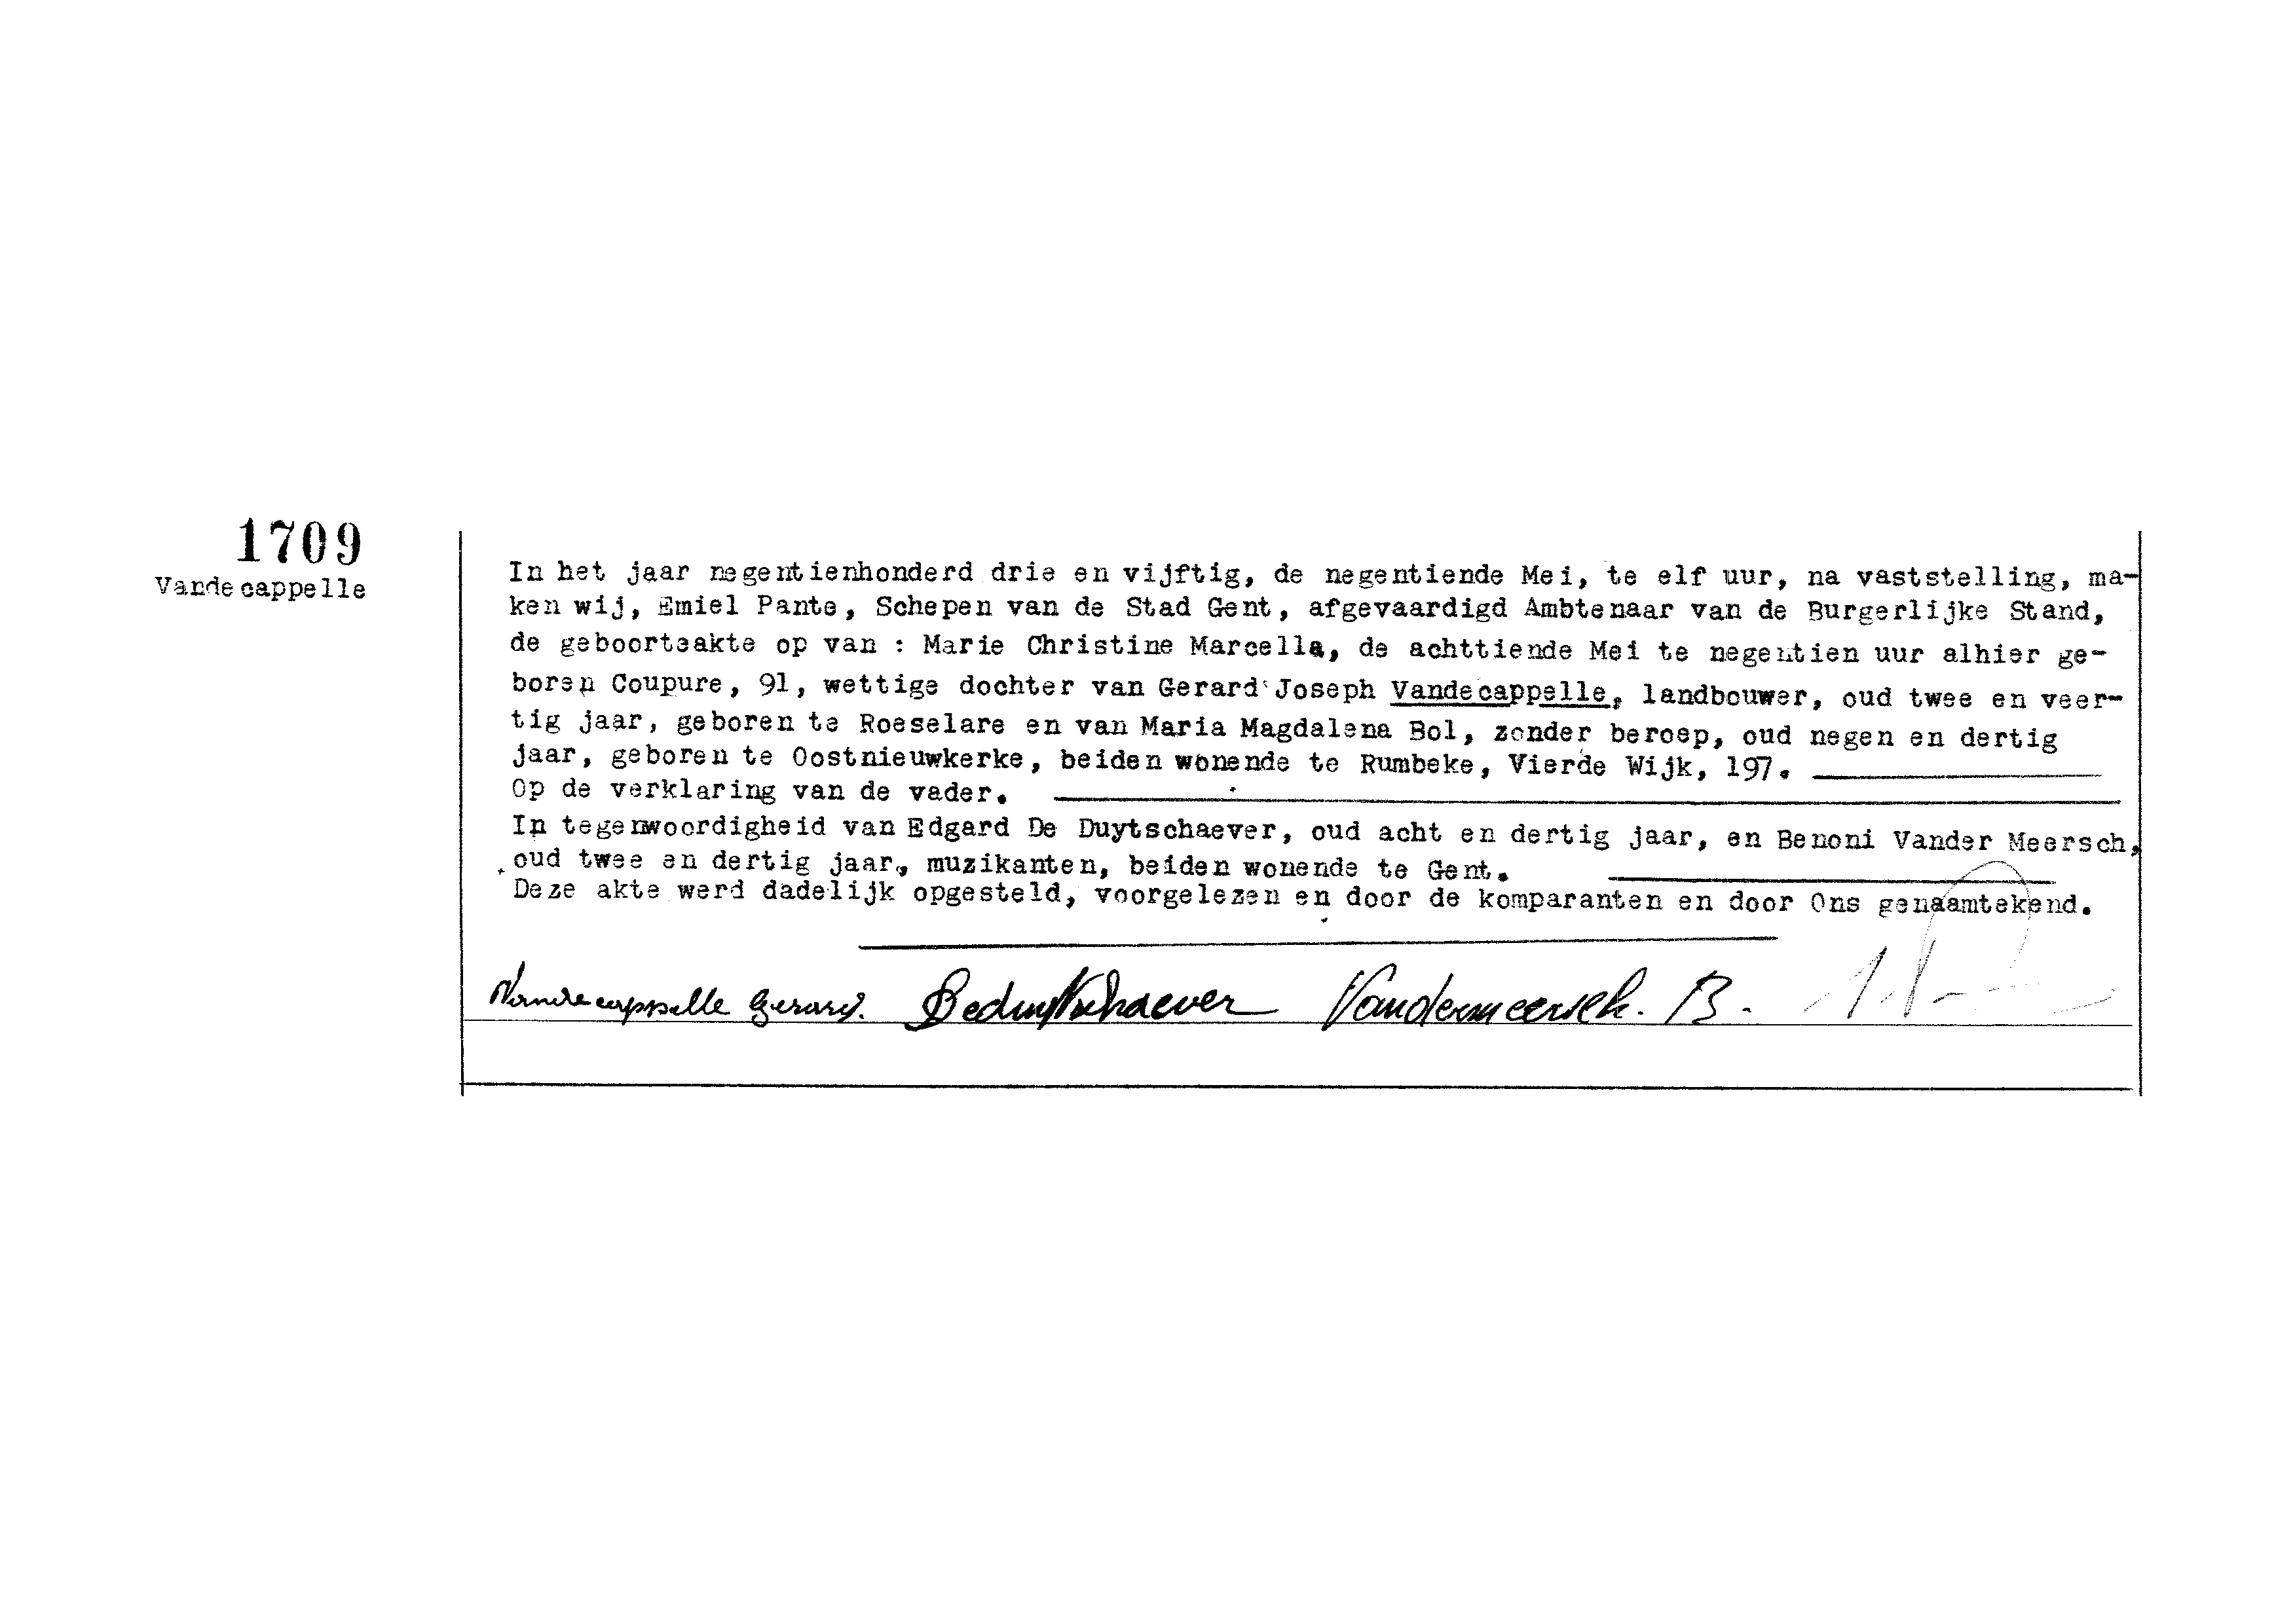 1709
Vandecappelle
In het jaar negentienhonderd drie en vijftig, de negentiende Mei, te elf uur, na vaststelling, ma-
ken wij, Emiel Pante, Schepen van de Stad Gent, afgevaardigd Ambtenaar van de Burgerlijke Stand,
de geboorteakte op van : Marie Christine Marcella, de achttiende Mei te negentien uur alhier ge-
boren Coupure, 91, wettige dochter van Gerard Joseph Vandecappelle, landbouwer, oud twee en veer-
tig jaar, geboren te Roeselare en van Maria Magdalena Bol, zonder beroep, oud negen en dertig
jaar, geboren te Oostnieuwkerke, beiden wonende te Rumbeke, Vierde Wijk, 197.
Op de verklaring van de vader.
In tegenwoordigheid van Edgard De Duytschaever, oud acht en dertig jaar, en Benoni Vander Meersch,
oud twee en dertig jaar, muzikanten, beiden wonende te Gent.
Deze akte werd dadelijk opgesteld, voorgelezen en door de komparanten en door Ons genaamtekend.
Vandecappelle Gerard. Deduytschaever Vandermeersch. B.